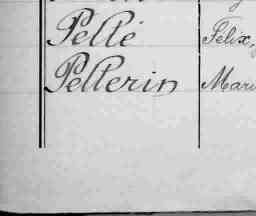 Pellé Félix,
Pellerin Mari